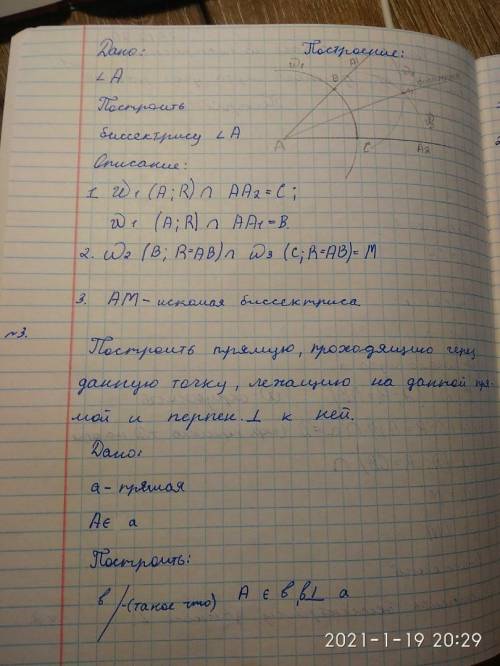 Дано: Построение:
∠A
Построить
биссектрису ∠A
Описание:
1. W₁ (A; R) ∩ AA₂ = C;
W₁ (A; R) ∩ AA₁ = B.
2. W₂ (B; R=AB) ∩ W₃ (C; R=AB) = M
3. AM - искомая биссектриса.
W₁ B A₁
A C A₂
№3.
Построить прямую, проходящию через
данную точку, лежащию на данной пря-
мой и перпен. ⊥ к ней.
Дано:
a - прямая
A ∈ a
Построить:
в /-(такое что) A ∈ в, в⊥ a
2021-1-19 20:29